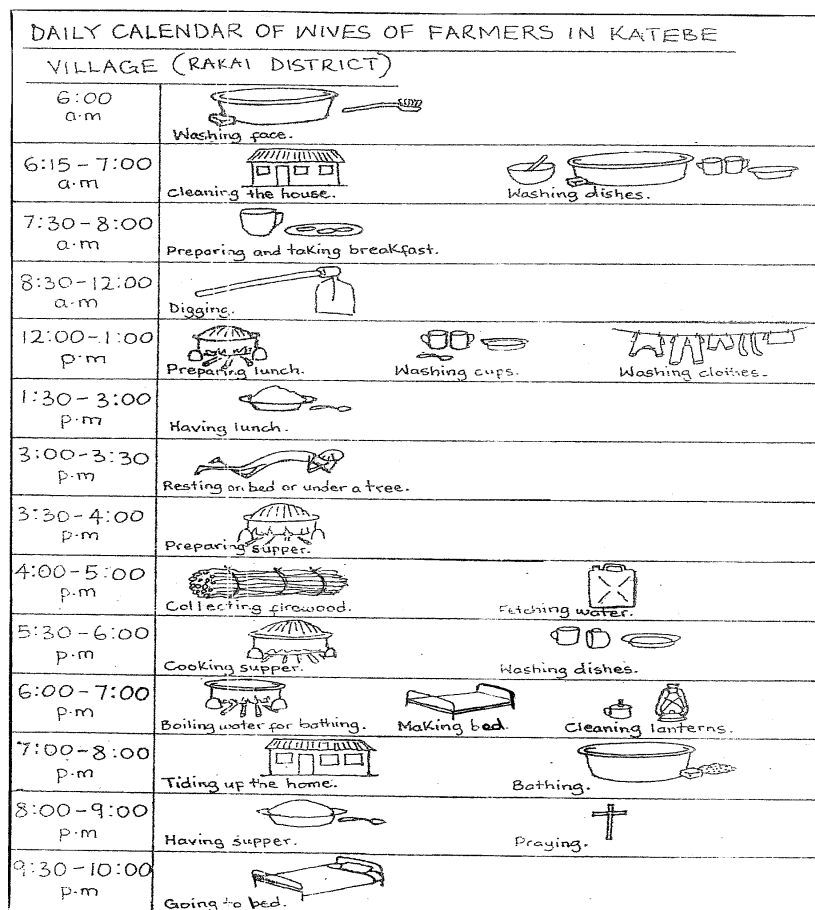 DAILY CALENDAR OF WIVES OF FARMERS IN KATEBE
VILLAGE (RAKAI DISTRICT)
6:00
a.m
Washing face.
6:15 - 7:00
a.m
Cleaning the house.
Washing dishes.
7:30 - 8:00
a.m
Preparing and taking breakfast.
8:30 - 12:00
a.m
Digging.
12:00 - 1:00
p.m
Preparing lunch.
Washing cups.
Washing clothes.
1:30 - 3:00
p.m
Having lunch.
3:00 - 3:30
p.m
Resting on bed or under a tree.
3:30 - 4:00
p.m
Preparing supper.
4:00 - 5:00
p.m
Collecting firewood.
Fetching water.
5:30 - 6:00
p.m
Cooking supper.
Washing dishes.
6:00 - 7:00
p.m
Boiling water for bathing.
Making bed.
Cleaning lanterns.
7:00 - 8:00
p.m
Tiding up the home.
Bathing.
8:00 - 9:00
p.m
Having supper.
Praying.
9:30 - 10:00
p.m
Going to bed.